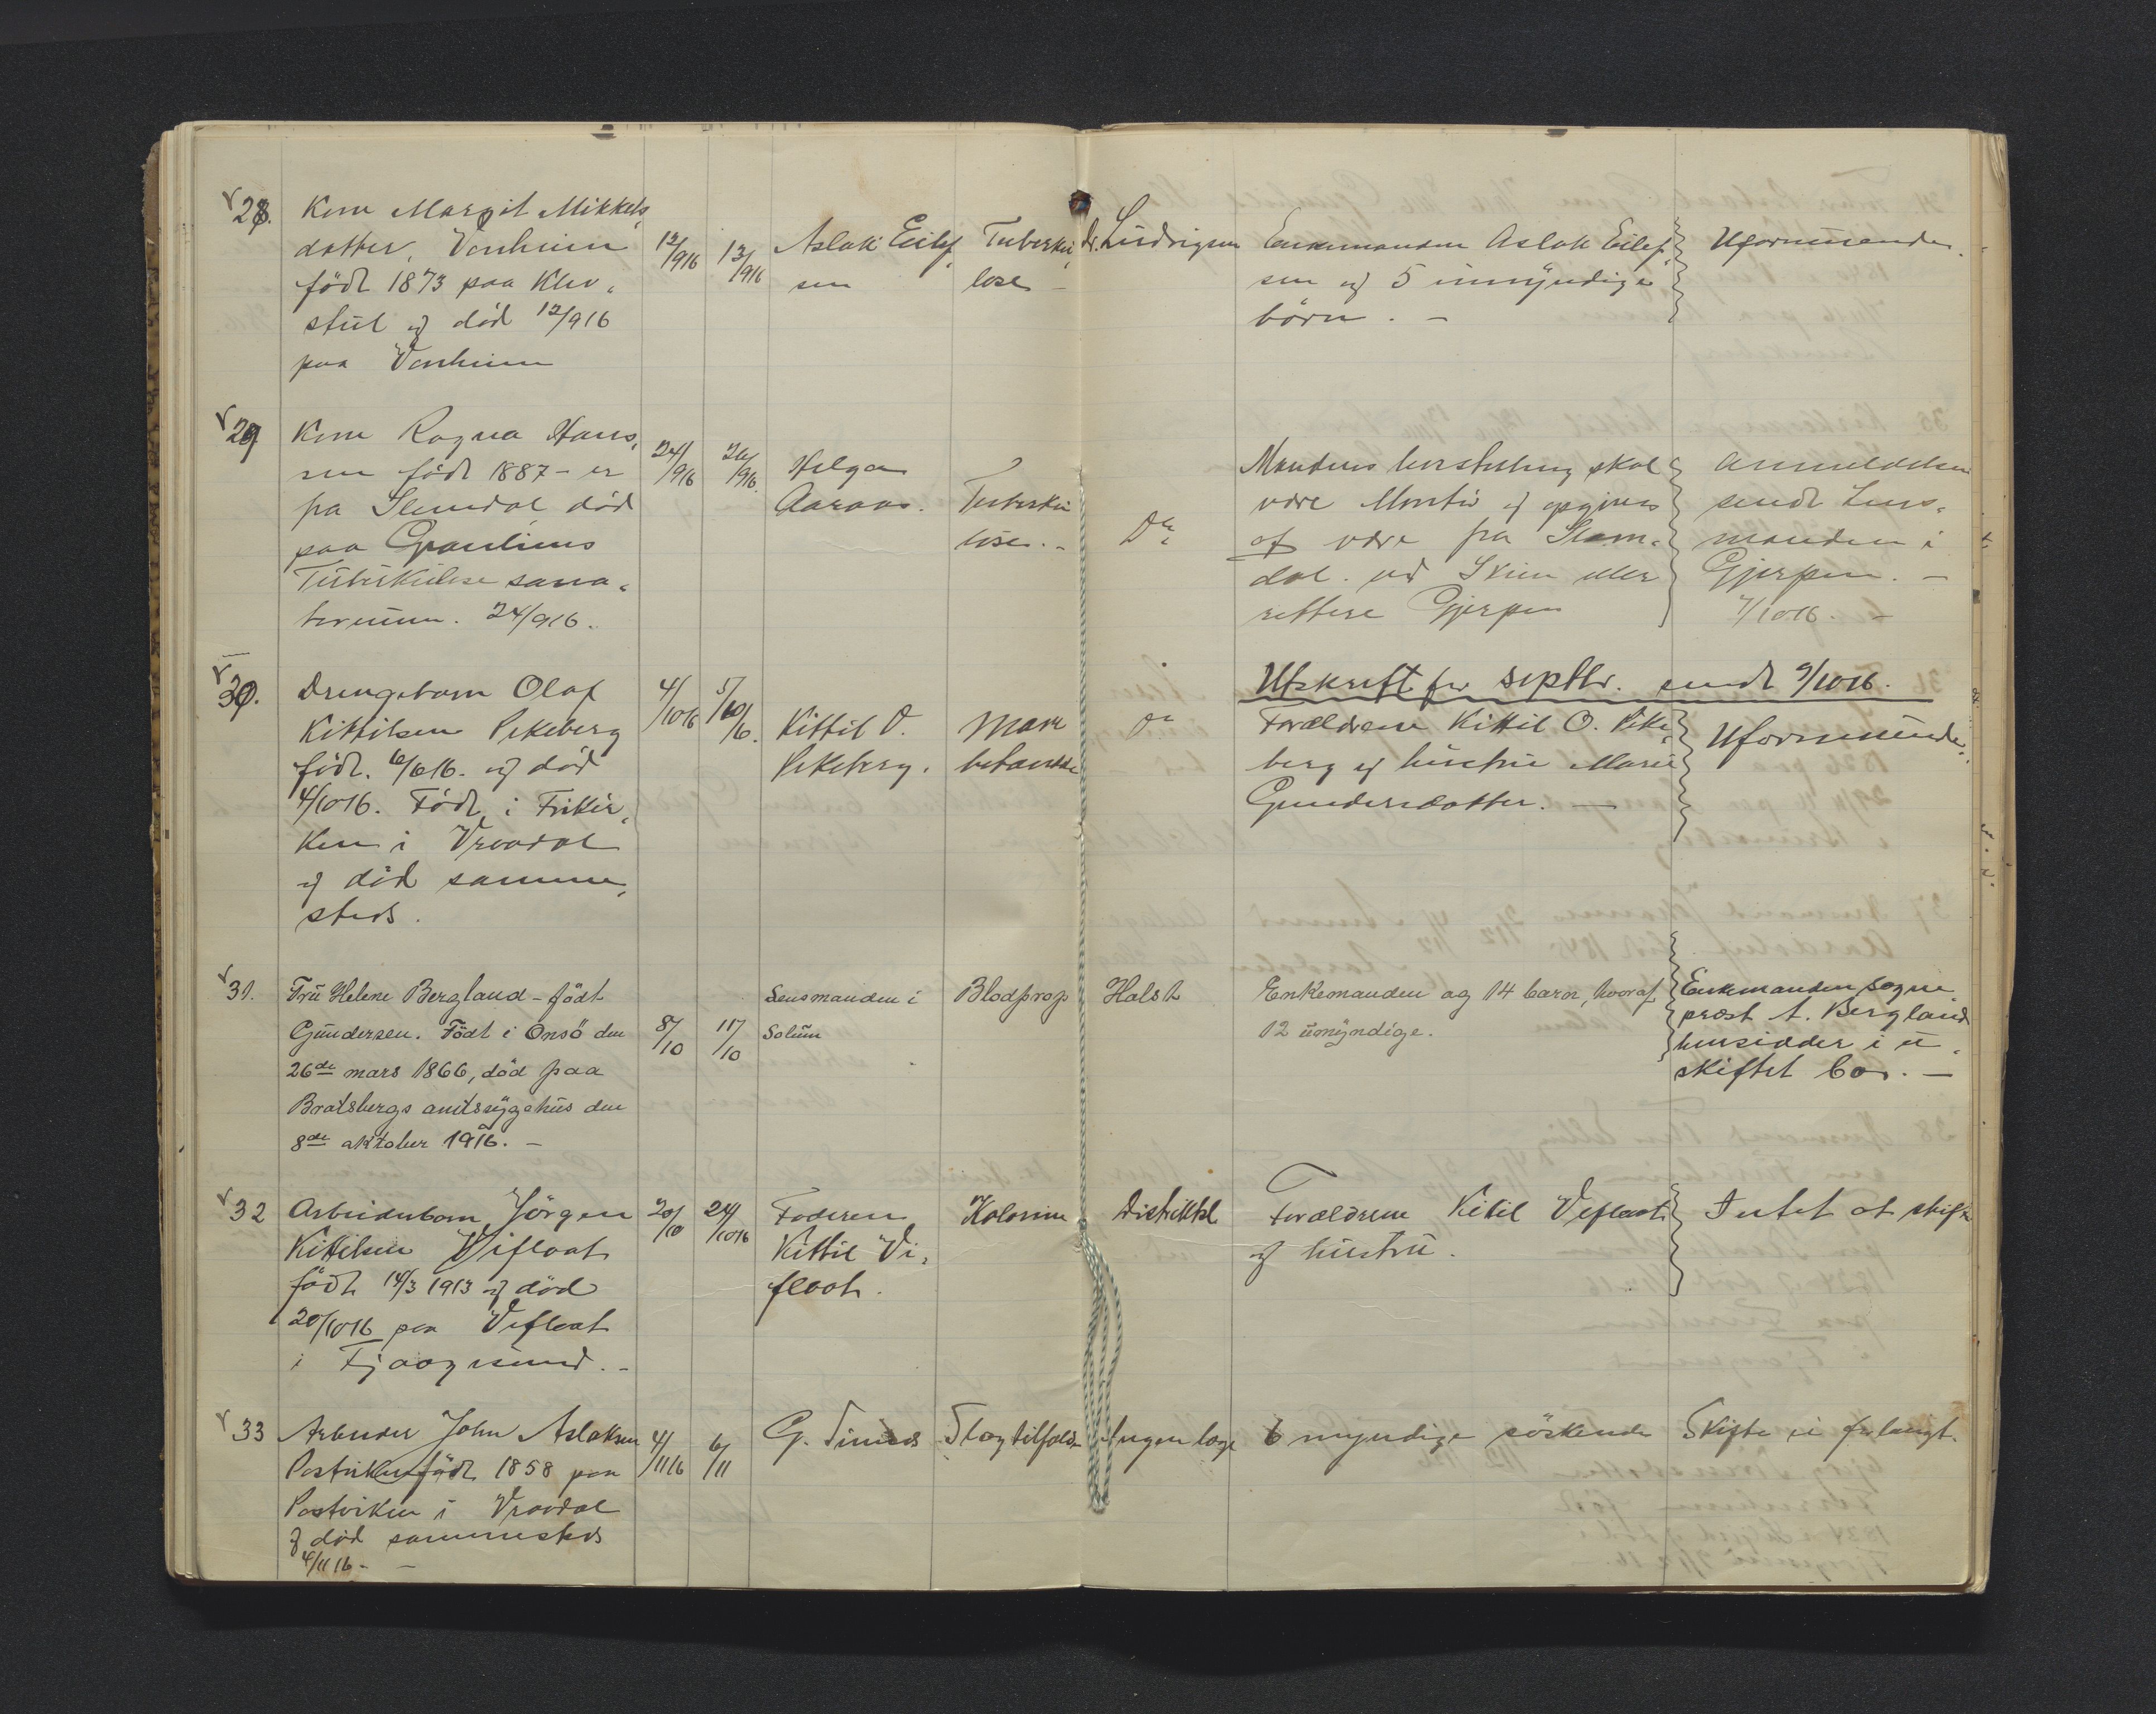 28. Kone Margit Mikkels
datter, Vonheim
född 1873 paa Klev
stul og död 12/916
paa Vonheim
12/916
13/916
Aslak Eilef
sen
Tuberku
lose
dr. Ludvigsen
Enkemanden Aslak Eilef
sen og 5 umyndige
börn. -
Uformuende.
29 Kone Ragna Hans
sen född 1887 - er
fra Slemdal död
paa Grautens
Tuberkulose sana
torium. 24/916.
24/916
26/916.
Helga
Aaraas.
Tuberku
lose. -
Do
Mandens
være og opgives
at være fra Slem
dal. ved Skien eller
rettere Gjerpen
Anmeldelsen
sendt Lens
manden i
Gjerpen. -
7/1016. -
Utskrift for septbr. sendt 9/1016.
30. Drengebarn Olaf
Kittilsen Vekeberg
född. 6/616. og död
4/1016. Född i Frikir
ken i Vraadal
og död samme
steds.
4/1016
5/1016.
Kittil O.
Vekeberg.
Do
Forældrene Kittil O. Veke
berg og hustru Marie
Gundersdatter. -
Uformuende.
31. Fru Helene Bergland - född
Gundersen. Född i Onsö den
26de mars 1866, död paa
Bratsbergs amtssygehus den
8de oktober 1916. -
8/10
11/10
Lensmanden i
Solum
Blodprop
Holst
Enkemanden og 14 barn, hvoraf
12 umyndige.
Enkemanden sogne
prest A. Bergland
hensidder i u
skiftet bo. -
32 Arbeiderbarn Jörgen
Kittilsen Vifloat
född 14/3 1913 og död
20/1016 paa Vefloat
i Fjaagesund. -
20/10
24/1016
Faderen
Kittil Vi
float.
Kolerine
Distriktsl
Forældrene Kittil Vefloat
og hustru.
Intet at skifte
33 Arbeider John Aslaksen
Postviken född 1858 paa
Postviken i Vraadal
og död sammesteds
4/1116 - -
4/1116
6/11
G. Tinnes
Slagtilfælde
Ingen læge
6 myndige söskende
Skifte ei forlangt.